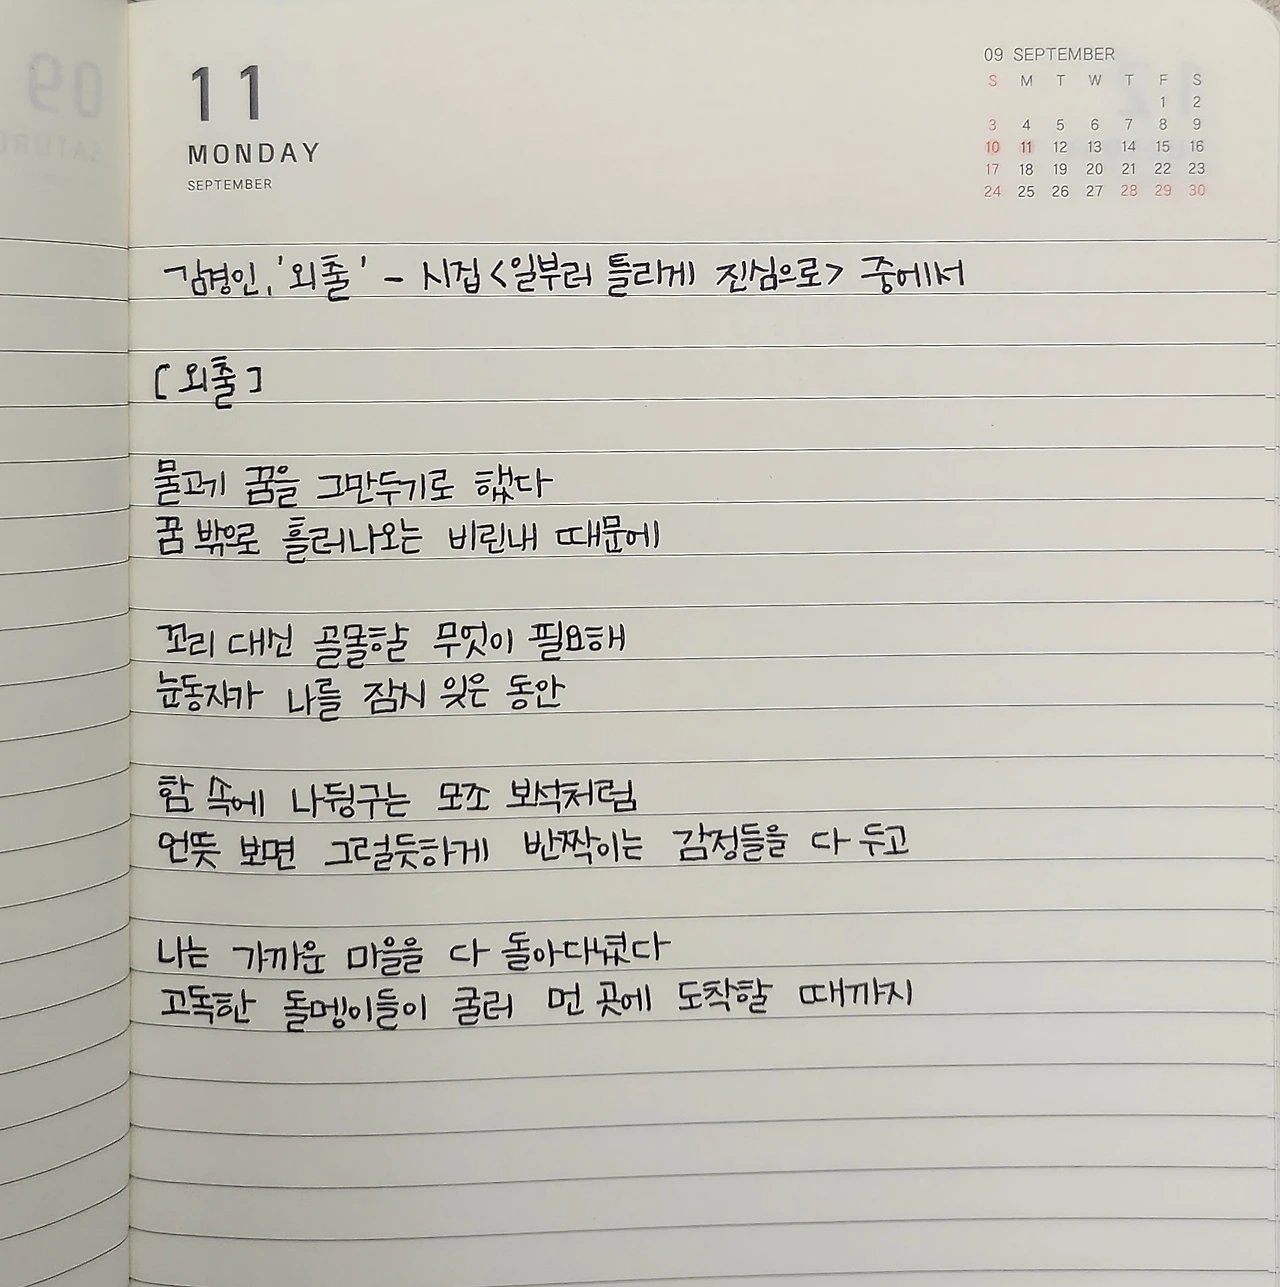 11
MONDAY
SEPTEMBER
09 SEPTEMBER
S M T W T F S
1 2
3 4 5 6 7 8 9
10 11 12 13 14 15 16
17 18 19 20 21 22 23
24 25 26 27 28 29 30
김경인, '외출' - 시집 <일부러 틀리게 진심으로> 중에서
[외출]
물고기 꿈을 그만두기로 했다
꿈 밖으로 흘러나오는 비린내 때문에
꼬리 대신 골몰할 무엇이 필요해
눈동자가 나를 잠시 잊은 동안
함 속에 나뒹구는 모조 보석처럼
언뜻 보면 그럴듯하게 반짝이는 감정들을 다 두고
나는 가까운 마을을 다 돌아다녔다
고독한 돌멩이들이 굴러 먼 곳에 도착할 때까지